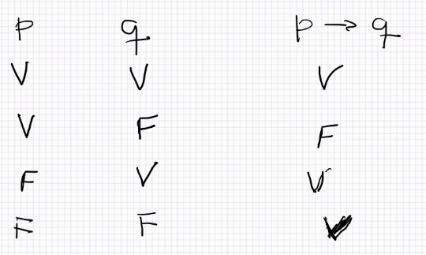 p q p → q
V V V
V F F
F V V
F F V